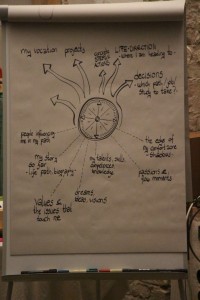 my vocation projects
LIFE-DIRECTION
- where i am heading to -
decisions
- which path / job/
study to take?
people influencing
me in my path
the edge of
my comfort zone
- shadows
my story
so far
- life path, biography -
my talents, skills
competences
knowledge
passions &
flow moments
dreams
ideas, visions
values &
the issues that
touch me